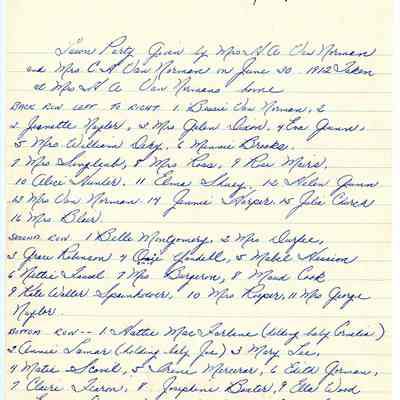 Lawn Party Given by Mrs H. A. Van Norman
and Mrs C. A. Van Norman on June 30 1912 Taken
at Mrs H A Van Normans home
BACK ROW LEFT TO RIGHT 1. Bessie Van Norman, 2
2 Jeanette Naylor, 3 Mrs Dixon, 4 Eva Gunn,
5 Mrs William Doky, 6 Minnie Brooks.
7 Mrs 8 Mrs Ross, 9 Rose Meirs,
10 Alice Hunter. 11 Elma 12 Helen Gunn
13 Mrs Van Norman 14 Jennie Harper. 15 Julia Church
16 Mrs Blair.
SECOND ROW. 1 Belle Montgomery, 2 Mrs Durfee,
3 Grace Robinson 4 Yondell, 5 Mabel
6 Nettie 7 Mrs Bergeron, 8 Maud Cook
9 Kate Weller 10 Mrs Roper, 11 Mrs George
Naylor.
BOTTOM ROW -- 1 Hattie Mac Farlene (holding baby )
2 Annie Lamar (holding baby Joe) 3 Mary Lee,
4 Matie 5 Irene Mercurar, 6 Edith Gorman,
7 Claire 8. Josephine Baxter, 9 Ella Wood